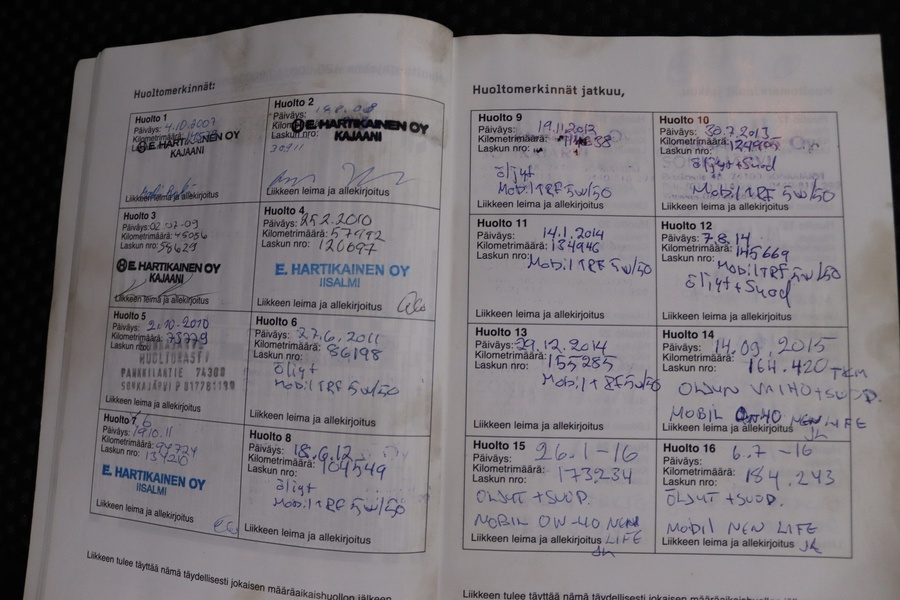 Huoltomerkinnät:
Huolto 1
Päiväys: 4.10.2007
Kilometrimäärä:
E. HARTIKAINEN OY
KAJAANI
Liikkeen leima ja allekirjoitus
Huolto 2
Päiväys:
Laskun nro:
E. HARTIKAINEN OY
KAJAANI
Liikkeen leima ja allekirjoitus
Huolto 3
Päiväys: 02-07-09
Kilometrimäärä: 45056
Laskun nro: 58629
E. HARTIKAINEN OY
KAJAANI
Liikkeen leima ja allekirjoitus
Huolto 4
Päiväys: 25.2.2010
Kilometrimäärä:
Laskun nro: 120697
E. HARTIKAINEN OY
IISALMI
Liikkeen leima ja allekirjoitus
Huolto 5
Päiväys: 2.10-2010
Kilometrimäärä: 75779
Laskun nro:
PANKKILANTIE 74300
SONKAJÄRVI P 017781190
Liikkeen leima ja allekirjoitus
Huolto 6
Päiväys: 27.6.2011
Kilometrimäärä: 86198
Laskun nro:
öljyt
Mobil TRF 5w/50
Liikkeen leima ja allekirjoitus
Huolto 7
Päiväys: 19.10.11
Kilometrimäärä:
Laskun nro:
E. HARTIKAINEN OY
IISALMI
Liikkeen leima ja allekirjoitus
Huolto 8
Päiväys: 18.6.12
Kilometrimäärä: 104549
Laskun nro:
öljyt
Mobil TRF 5w/50
Liikkeen leima ja allekirjoitus
Liikkeen tulee täyttää nämä täydellisesti jokaisen määräaikaishuollon jälkeen
Huoltomerkinnät jatkuu,
Huolto 9
Päiväys: 19.11.2012
Kilometrimäärä:
Laskun nro:
öljyt
Mobil TRF 5w/50
Liikkeen leima ja allekirjoitus
Huolto 10
Päiväys: 30.7.2013
Kilometrimäärä:
Laskun nro:
öljyt+Suod
Mobil TRF 5w/50
Liikkeen leima ja allekirjoitus
Huolto 11
Päiväys: 14.1.2014
Kilometrimäärä: 134946
Laskun nro: Mobil TRF 5w/50
Liikkeen leima ja allekirjoitus
Huolto 12
Päiväys: 7.8.14
Kilometrimäärä: 145669
Laskun nro: Mobil TRF 5w/50
öljyt+Suod
Liikkeen leima ja allekirjoitus
Huolto 13
Päiväys: 29.12.2014
Kilometrimäärä: 155285
Laskun nro:
Mobil 5w/50
Liikkeen leima ja allekirjoitus
Huolto 14
Päiväys: 14.09.2015
Kilometrimäärä: 164.420 TKM
Laskun nro:
ÖLJYN VAIHO+SUOD.
MOBIL 0W40 NEW LIFE
Liikkeen leima ja allekirjoitus JK
Huolto 15
Päiväys: 26.1-16
Kilometrimäärä: 173234
Laskun nro:
ÖLJYT +SUOD.
MOBIL 0W-40 NEW
Liikkeen leima ja allekirjoitus LIFE
JK
Huolto 16
Päiväys: 6.7-16
Kilometrimäärä: 184.243
Laskun nro:
ÖLJYT +SUOD.
MOBIL NEW LIFE
Liikkeen leima ja allekirjoitus JK